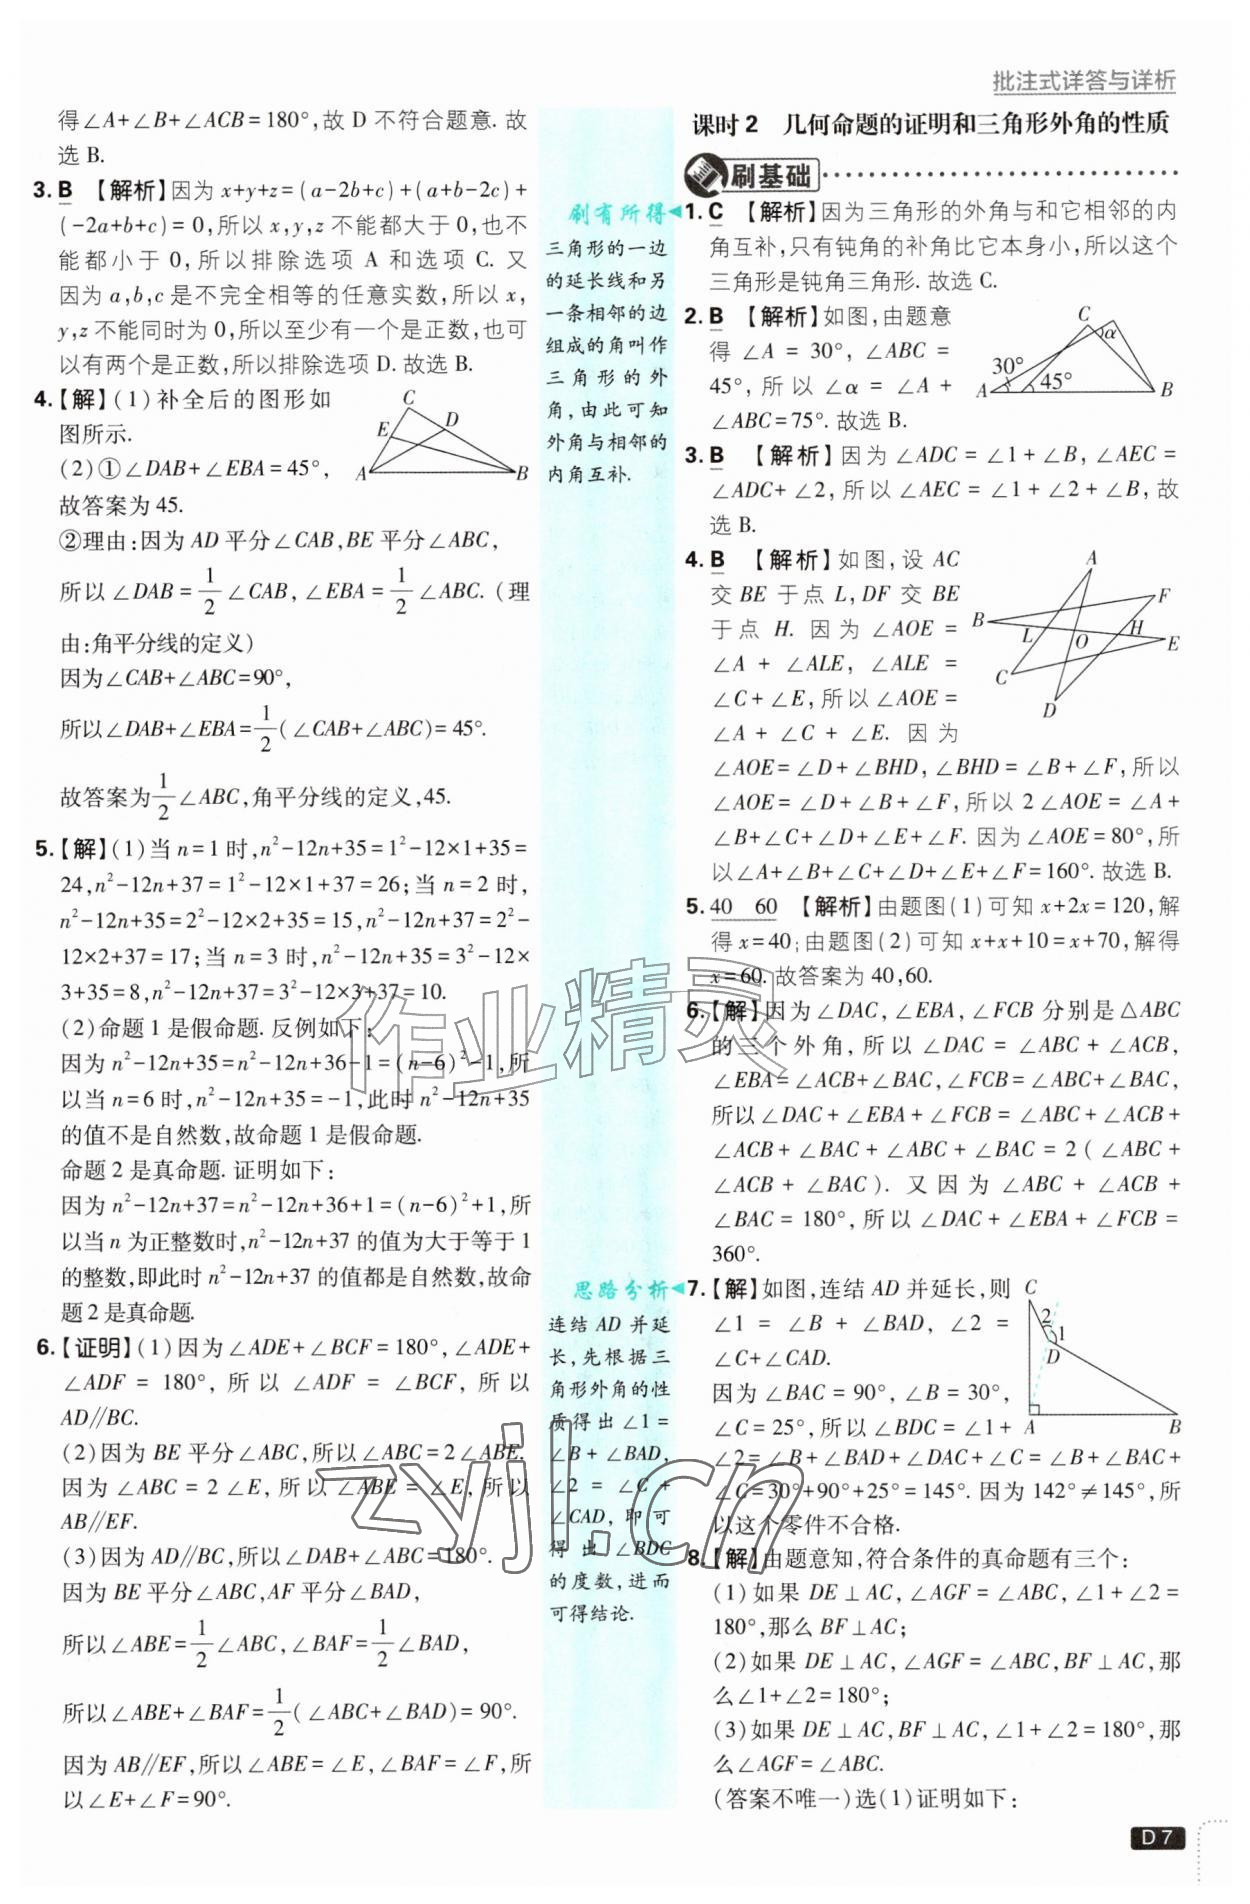 批注式详答与详析
得∠A+∠B+∠ACB=180°,故 D 不符合题意. 故
选 B.
3. B 【解析】因为 x+y+z=(a-2b+c)+(a+b-2c)+
(-2a+b+c)=0,所以 x,y,z 不能都大于 0,也不
能都小于 0,所以排除选项 A 和选项 C. 又
因为 a,b,c 是不完全相等的任意实数,所以 x,
y,z 不能同时为 0,所以至少有一个是正数,也可
以有两个是正数,所以排除选项 D. 故选 B.
4.【解】(1)补全后的图形如
图所示.
(2)①∠DAB+∠EBA=45°,
故答案为 45.
C
D
E
A
B
②理由:因为 AD 平分∠CAB,BE 平分∠ABC,
所以∠DAB=1/2∠CAB,∠EBA=1/2∠ABC. (理
由:角平分线的定义)
因为∠CAB+∠ABC=90°,
所以∠DAB+∠EBA=1/2(∠CAB+∠ABC)=45°.
故答案为1/2∠ABC,角平分线的定义,45.
5.【解】(1)当 n=1 时,n²-12n+35=1²-12×1+35=
24,n²-12n+37=1²-12×1+37=26;当 n=2 时,
n²-12n+35=2²-12×2+35=15,n²-12n+37=2²-
12×2+37=17;当 n=3 时,n²-12n+35=3²-12×
3+35=8,n²-12n+37=3²-12×3+37=10.
(2)命题 1 是假命题. 反例如下:
因为 n²-12n+35=n²-12n+36-1=(n-6)²-1,所
以当 n=6 时,n²-12n+35=-1,此时 n²-12n+35
的值不是自然数,故命题 1 是假命题.
命题 2 是真命题. 证明如下:
因为 n²-12n+37=n²-12n+36+1=(n-6)²+1,所
以当 n 为正整数时,n²-12n+37 的值为大于等于 1
的整数,即此时 n²-12n+37 的值都是自然数,故命
题 2 是真命题.
6.【证明】(1)因为∠ADE+∠BCF=180°,∠ADE+
∠ADF = 180°,所以∠ADF = ∠BCF,所以
AD∥BC.
(2)因为 BE 平分∠ABC,所以∠ABC=2∠ABE.
因为∠ABC = 2∠E,所以∠ABE = ∠E,所以
AB∥EF.
(3)因为 AD∥BC,所以∠DAB+∠ABC=180°.
因为 BE 平分∠ABC,AF 平分∠BAD,
所以∠ABE=1/2∠ABC,∠BAF=1/2∠BAD,
所以∠ABE+∠BAF=1/2(∠ABC+∠BAD)=90°.
因为 AB∥EF,所以∠ABE=∠E,∠BAF=∠F,所
以∠E+∠F=90°.
刷有所得
三角形的一边
的延长线和另
一条相邻的边
组成的角叫作
三角形的外
角,由此可知
外角与相邻的
内角互补.
思路分析
连结 AD 并延
长,先根据三
角形外角的性
质得出∠1=
∠B+∠BAD,
∠2=∠C+
∠CAD,即可
得出∠BDC
的度数,进而
可得结论.
课时 2 几何命题的证明和三角形外角的性质
刷基础
1. C 【解析】因为三角形的外角与和它相邻的内
角互补,只有钝角的补角比它本身小,所以这个
三角形是钝角三角形. 故选 C.
2. B 【解析】如图,由题意
得∠A = 30°,∠ABC =
45°,所以∠α=∠A+
∠ABC=75°. 故选 B.
C
α
30°
45°
A
B
3. B 【解析】因为∠ADC=∠1+∠B,∠AEC=
∠ADC+∠2,所以∠AEC=∠1+∠2+∠B,故
选 B.
4. B 【解析】如图,设 AC
交 BE 于点 L,DF 交 BE
于点 H. 因为∠AOE=
∠A + ∠ALE,∠ALE =
∠C+∠E,所以∠AOE=
∠A + ∠C + ∠E. 因为
A
F
B
L
O
H
E
C
D
∠AOE=∠D+∠BHD,∠BHD=∠B+∠F,所以
∠AOE=∠D+∠B+∠F,所以 2∠AOE=∠A+
∠B+∠C+∠D+∠E+∠F. 因为∠AOE=80°,所
以∠A+∠B+∠C+∠D+∠E+∠F=160°. 故选 B.
5. 40 60 【解析】由题图(1)可知 x+2x=120,解
得 x=40;由题图(2)可知 x+x+10=x+70,解得
x=60. 故答案为 40,60.
6.【解】因为∠DAC,∠EBA,∠FCB 分别是△ABC
的三个外角,所以∠DAC=∠ABC+∠ACB,
∠EBA=∠ACB+∠BAC,∠FCB=∠ABC+∠BAC,
所以∠DAC+∠EBA+∠FCB=∠ABC+∠ACB+
∠ACB+∠BAC+∠ABC+∠BAC=2(∠ABC+
∠ACB+∠BAC). 又因为∠ABC+∠ACB+
∠BAC=180°,所以∠DAC+∠EBA+∠FCB=
360°.
7.【解】如图,连结 AD 并延长,则
∠1=∠B+∠BAD,∠2=
∠C+∠CAD.
因为∠BAC=90°,∠B=30°,
∠C=25°,所以∠BDC=∠1+
C
2
1
D
A
B
∠2=∠B+∠BAD+∠DAC+∠C=∠B+∠BAC+
∠C=30°+90°+25°=145°. 因为 142°≠145°,所
以这个零件不合格.
8.【解】由题意知,符合条件的真命题有三个:
(1)如果 DE⊥AC,∠AGF=∠ABC,∠1+∠2=
180°,那么 BF⊥AC;
(2)如果 DE⊥AC,∠AGF=∠ABC,BF⊥AC,那
么∠1+∠2=180°;
(3)如果 DE⊥AC,BF⊥AC,∠1+∠2=180°,那
么∠AGF=∠ABC.
(答案不唯一)选(1)证明如下:
D 7
作业精灵
zyjl.cn